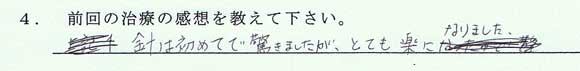 4. 前回の治療の感想を教えて下さい。
針は初めてで驚きましたが、とても楽になりました。